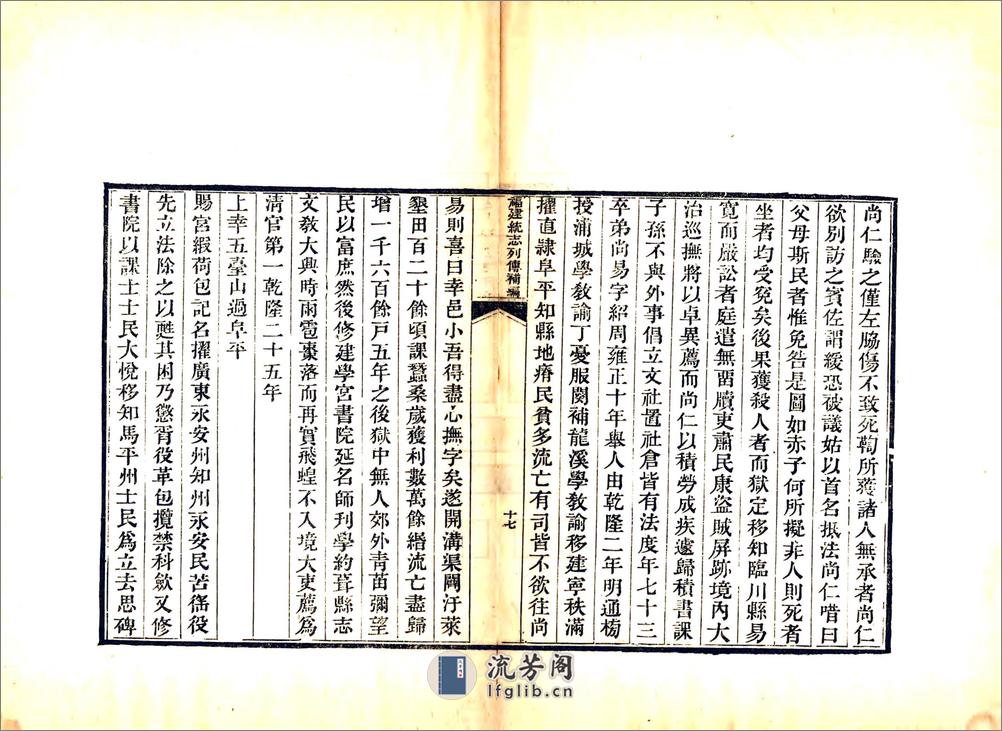 尚仁驗之僅左脇傷不致死鞫所獲諸人無承者尚仁
欲別訪之賓佐謂緩恐被議姑以首名抵法尚仁唶曰
父母斯民者惟免咎是圖如赤子何所擬非人則死者
坐者均受冤矣後果獲殺人者而獄定移知臨川縣易
寬而嚴訟者庭遣無畱牘吏肅民康盜賊屏跡境內大
治巡撫將以卓異薦而尚仁以積勞成疾遽歸積書課
子孫不與外事倡立文社置社倉皆有法度年七十三
卒弟尚易字紹周雍正十年舉人由乾隆二年明通榜
授浦城學教諭丁憂服闋補龍溪學教諭移建寧秩滿
擢直隸阜平知縣地瘠民貧多流亡有司皆不欲往尚
福建統志列傳補編
十七
易則喜曰幸邑小吾得盡心撫字矣遂開溝渠闢汙萊
墾田百二十餘頃課蠶桑歲獲利數萬餘緡流亡盡歸
增一千六百餘戸五年之後獄中無人郊外青苗彌望
民以富庶然後修建學宮書院延名師刊學約葺縣志
文教大興時雨雹棗落而再實飛蝗不入境大吏薦爲
清官第一乾隆二十五年
上幸五臺山過阜平
賜宮緞荷包記名擢廣東永安州知州永安民苦徭役
先立法除之以甦其困乃懲胥役革包攬禁科歛又修
書院以課士士民大悅移知馬平州士民爲立去思碑
流芳阁
lfglib.cn